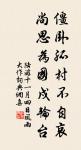 僵卧孤村不自哀
尚思为国戍轮台
陆游十一月四日风雨
大作诗词选集